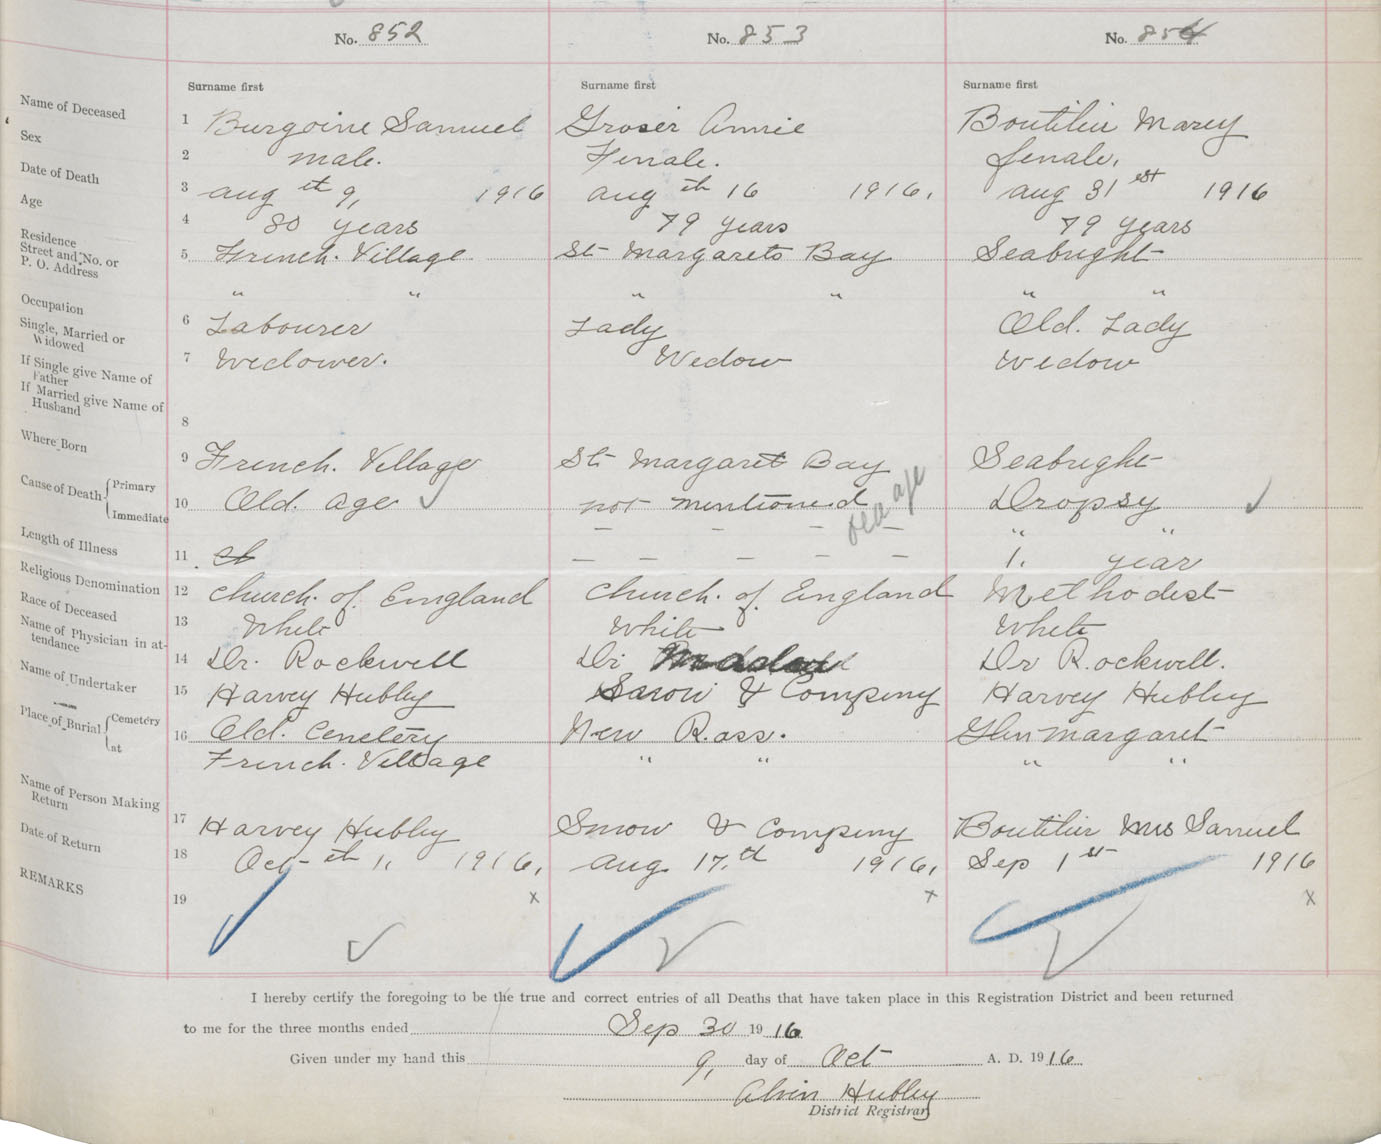 No. 852 No. 853 No. 854
Surname first Surname first Surname first
Name of Deceased 1 Burgoine Samuel Groser Annie Boutilier Marey
Sex 2 male. Female. female,
Date of Death 3 aug th 9, 1916 aug th 16 1916, aug 31 est 1916
Age 4 80 years 79 years 79 years
Residence
Street and No. or
P. O. Address 5 French. Village St Margarets Bay Seabright
" " " " " "
Occupation 6 Labourer Lady Old. Lady
Single, Married or
Widowed 7 Widower. Widow Widow
If Single give Name of
Father
If Married give Name of
Husband 8
Where Born 9 French. Village St Margaret Bay Seabright
Cause of Death Primary
Immediate 10 Old. age not mentioned old age Dropsy
– – – – " "
Length of Illness 11 – – – – – 1. year
Religious Denomination 12 Church. of. England Church. of. England Methodist
Race of Deceased 13 White White White
Name of Physician in at-
tendance 14 Dr. Rockwell Dr Dr Rockwell.
Name of Undertaker 15 Harvey Hubley Snow & Company Harvey Hubley
Place of Burial Cemetery
at 16 Old. Cemetery New Ross. Glen Margaret
French. Village " " " "
Name of Person Making
Return 17 Harvey Hubley Snow & Company Boutilier Mrs Samuel
Date of Return 18 Oct th 1, 1916, aug. 17,th 1916, Sep 1 st 1916
REMARKS 19 x x x
I hereby certify the foregoing to be the true and correct entries of all Deaths that have taken place in this Registration District and been returned
to me for the three months ended Sep 30 1916
Given under my hand this 9, day of Oct A. D. 1916
Alvin Hubley
District Registrar